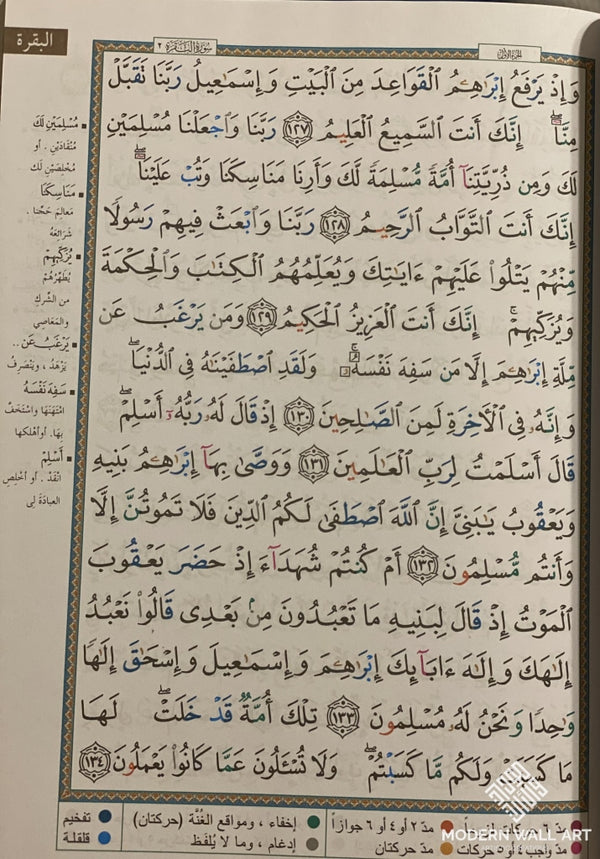 البقرة
سُورَةُ البَقَرَةِ ٢
الجزء الأول
وَإِذْ يَرْفَعُ إِبْرَٰهِـۧمُ ٱلْقَوَاعِدَ مِنَ ٱلْبَيْتِ وَإِسْمَٰعِيلُ رَبَّنَا تَقَبَّلْ
مِنَّآ ۖ إِنَّكَ أَنتَ ٱلسَّمِيعُ ٱلْعَلِيمُ ١٢٧ رَبَّنَا وَٱجْعَلْنَا مُسْلِمَيْنِ
لَكَ وَمِن ذُرِّيَّتِنَآ أُمَّةً مُّسْلِمَةً لَّكَ وَأَرِنَا مَنَاسِكَنَا وَتُبْ عَلَيْنَآ ۖ
إِنَّكَ أَنتَ ٱلتَّوَّابُ ٱلرَّحِيمُ ١٢٨ رَبَّنَا وَٱبْعَثْ فِيهِمْ رَسُولًا
مِّنْهُمْ يَتْلُوا۟ عَلَيْهِمْ ءَايَٰتِكَ وَيُعَلِّمُهُمُ ٱلْكِتَٰبَ وَٱلْحِكْمَةَ
وَيُزَكِّيهِمْ ۚ إِنَّكَ أَنتَ ٱلْعَزِيزُ ٱلْحَكِيمُ ١٢٩ وَمَن يَرْغَبُ عَن
مِّلَّةِ إِبْرَٰهِـۧمَ إِلَّا مَن سَفِهَ نَفْسَهُۥ ۚ وَلَقَدِ ٱصْطَفَيْنَٰهُ فِى ٱلدُّنْيَا ۖ
وَإِنَّهُۥ فِى ٱلْـَٔاخِرَةِ لَمِنَ ٱلصَّٰلِحِينَ ١٣٠ إِذْ قَالَ لَهُۥ رَبُّهُۥٓ أَسْلِمْ ۖ
قَالَ أَسْلَمْتُ لِرَبِّ ٱلْعَٰلَمِينَ ١٣١ وَوَصَّىٰ بِهَآ إِبْرَٰهِـۧمُ بَنِيهِ
وَيَعْقُوبُ يَٰبَنِىَّ إِنَّ ٱللَّهَ ٱصْطَفَىٰ لَكُمُ ٱلدِّينَ فَلَا تَمُوتُنَّ إِلَّا
وَأَنتُم مُّسْلِمُونَ ١٣٢ أَمْ كُنتُمْ شُهَدَآءَ إِذْ حَضَرَ يَعْقُوبَ
ٱلْمَوْتُ إِذْ قَالَ لِبَنِيهِ مَا تَعْبُدُونَ مِنۢ بَعْدِى قَالُوا۟ نَعْبُدُ
إِلَٰهَكَ وَإِلَٰهَ ءَابَآئِكَ إِبْرَٰهِـۧمَ وَإِسْمَٰعِيلَ وَإِسْحَٰقَ إِلَٰهًا
وَٰحِدًا وَنَحْنُ لَهُۥ مُسْلِمُونَ ١٣٣ تِلْكَ أُمَّةٌ قَدْ خَلَتْ ۖ لَهَا
مَا كَسَبَتْ وَلَكُم مَّا كَسَبْتُمْ ۖ وَلَا تُسْـَٔلُونَ عَمَّا كَانُوا۟ يَعْمَلُونَ ١٣٤
مُسْلِمَيْنِ لَكَ
مُنْقَادَيْنِ . أو
مُخْلِصَيْنِ لك
مَنَاسِكَنَا
مَعَالِمَ حَجِّنا .
شَرَائِعَهُ
يُزَكِّيهِمْ
يُطَهِّرُهُمْ
من الشِّركِ
والمَعَاصِي
يَرْغَبُ عَن..
يَزْهَدُ ، ويَنْصَرِفُ
سَفِهَ نَفْسَهُ
امْتَهَنَهَا واسْتَخَفَّ
بِهَا. أوأهلكها
أَسْلِمْ
انْقَدْ . أو أخْلِصِ
العبادَةَ لى
مدّ ٢ أو ٤ أو ٦ جوازاً
إخفاء ، ومواقع الغُنَّة (حركتان)
تفخيم
مدّ واجب ٤ أو ٥ حركات
مدّ حركتان
إدغام ، وما لا يُلفَظ
قلقلة
MODERN WALL ART